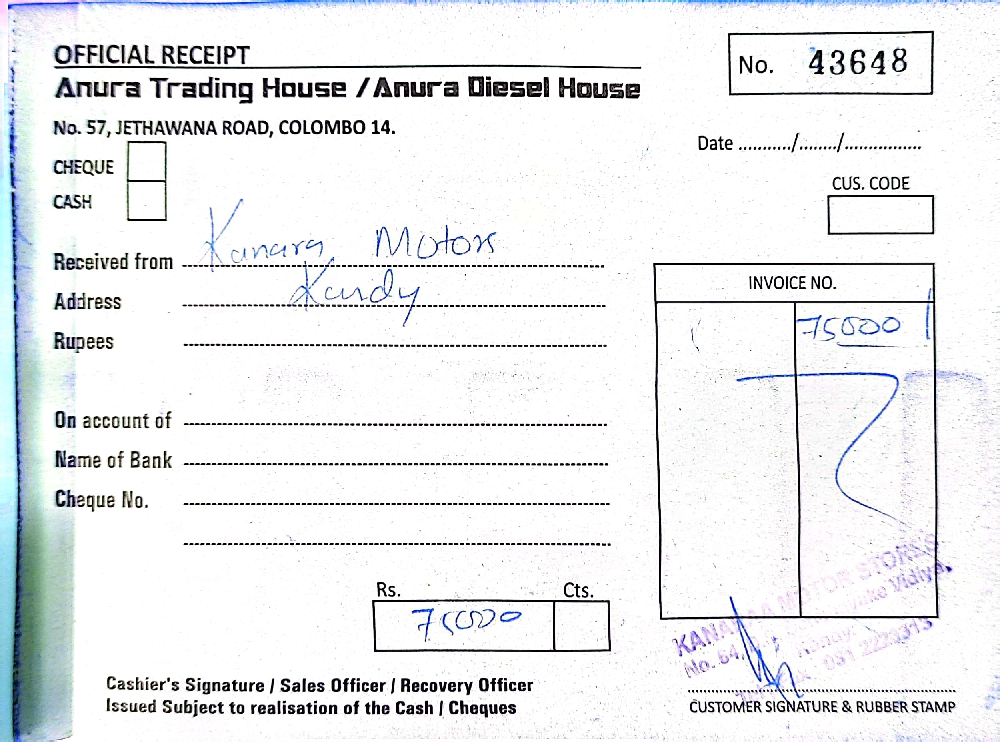 OFFICIAL RECEIPT
No. 43648
Anura Trading House / Anura Diesel House
No. 57, JETHAWANA ROAD, COLOMBO 14.
Date .........../......../..................
CHEQUE
CUS. CODE
CASH
Received from Kanara Motors
INVOICE NO.
Address Kandy
75000
Rupees
On account of
Name of Bank
Cheque No.
Rs. Cts.
75000
MOTOR STORES
Vidiya,
No. 64,
Kandy.
031
Cashier's Signature / Sales Officer / Recovery Officer
Issued Subject to realisation of the Cash / Cheques
CUSTOMER SIGNATURE & RUBBER STAMP